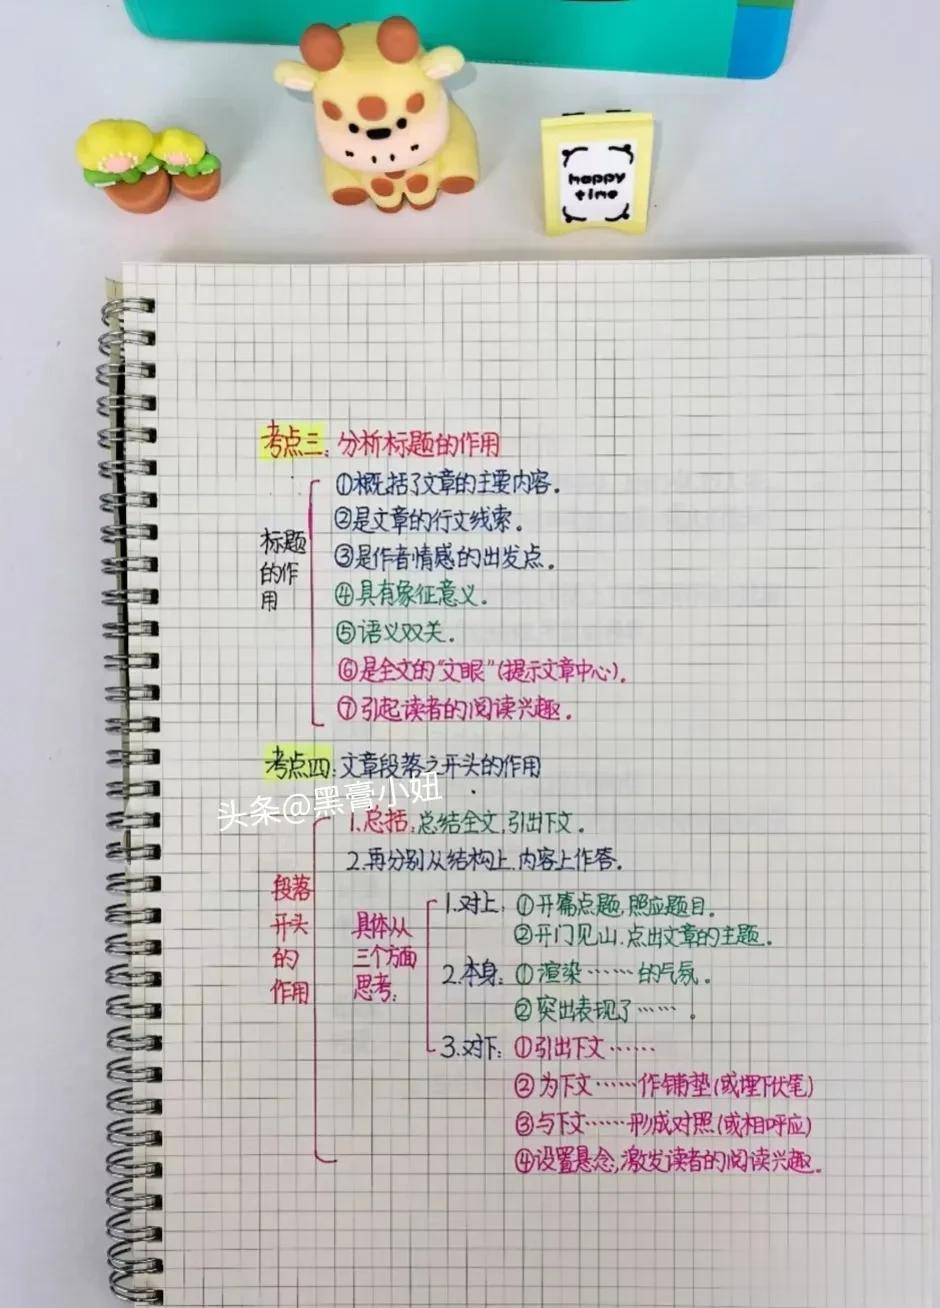 happy
time
考点三：分析标题的作用
标题
的作
用
①概括了文章的主要内容。
②是文章的行文线索。
③是作者情感的出发点。
④具有象征意义。
⑤语义双关。
⑥是全文的“文眼”(提示文章中心)。
⑦引起读者的阅读兴趣。
考点四：文章段落之开头的作用
头条@黑膏小妞
段落
开头
的
作用
1.总括：总结全文，引出下文。
2.再分别从结构上、内容上作答。
具体从
三个方面
思考：
1.对上：①开篇点题，照应题目。
②开门见山，点出文章的主题。
2.本身：①渲染……的气氛。
②突出表现了……。
3.对下：①引出下文……
②为下文……作铺垫(或埋下伏笔)
③与下文……形成对照(或相呼应)
④设置悬念，激发读者的阅读兴趣。